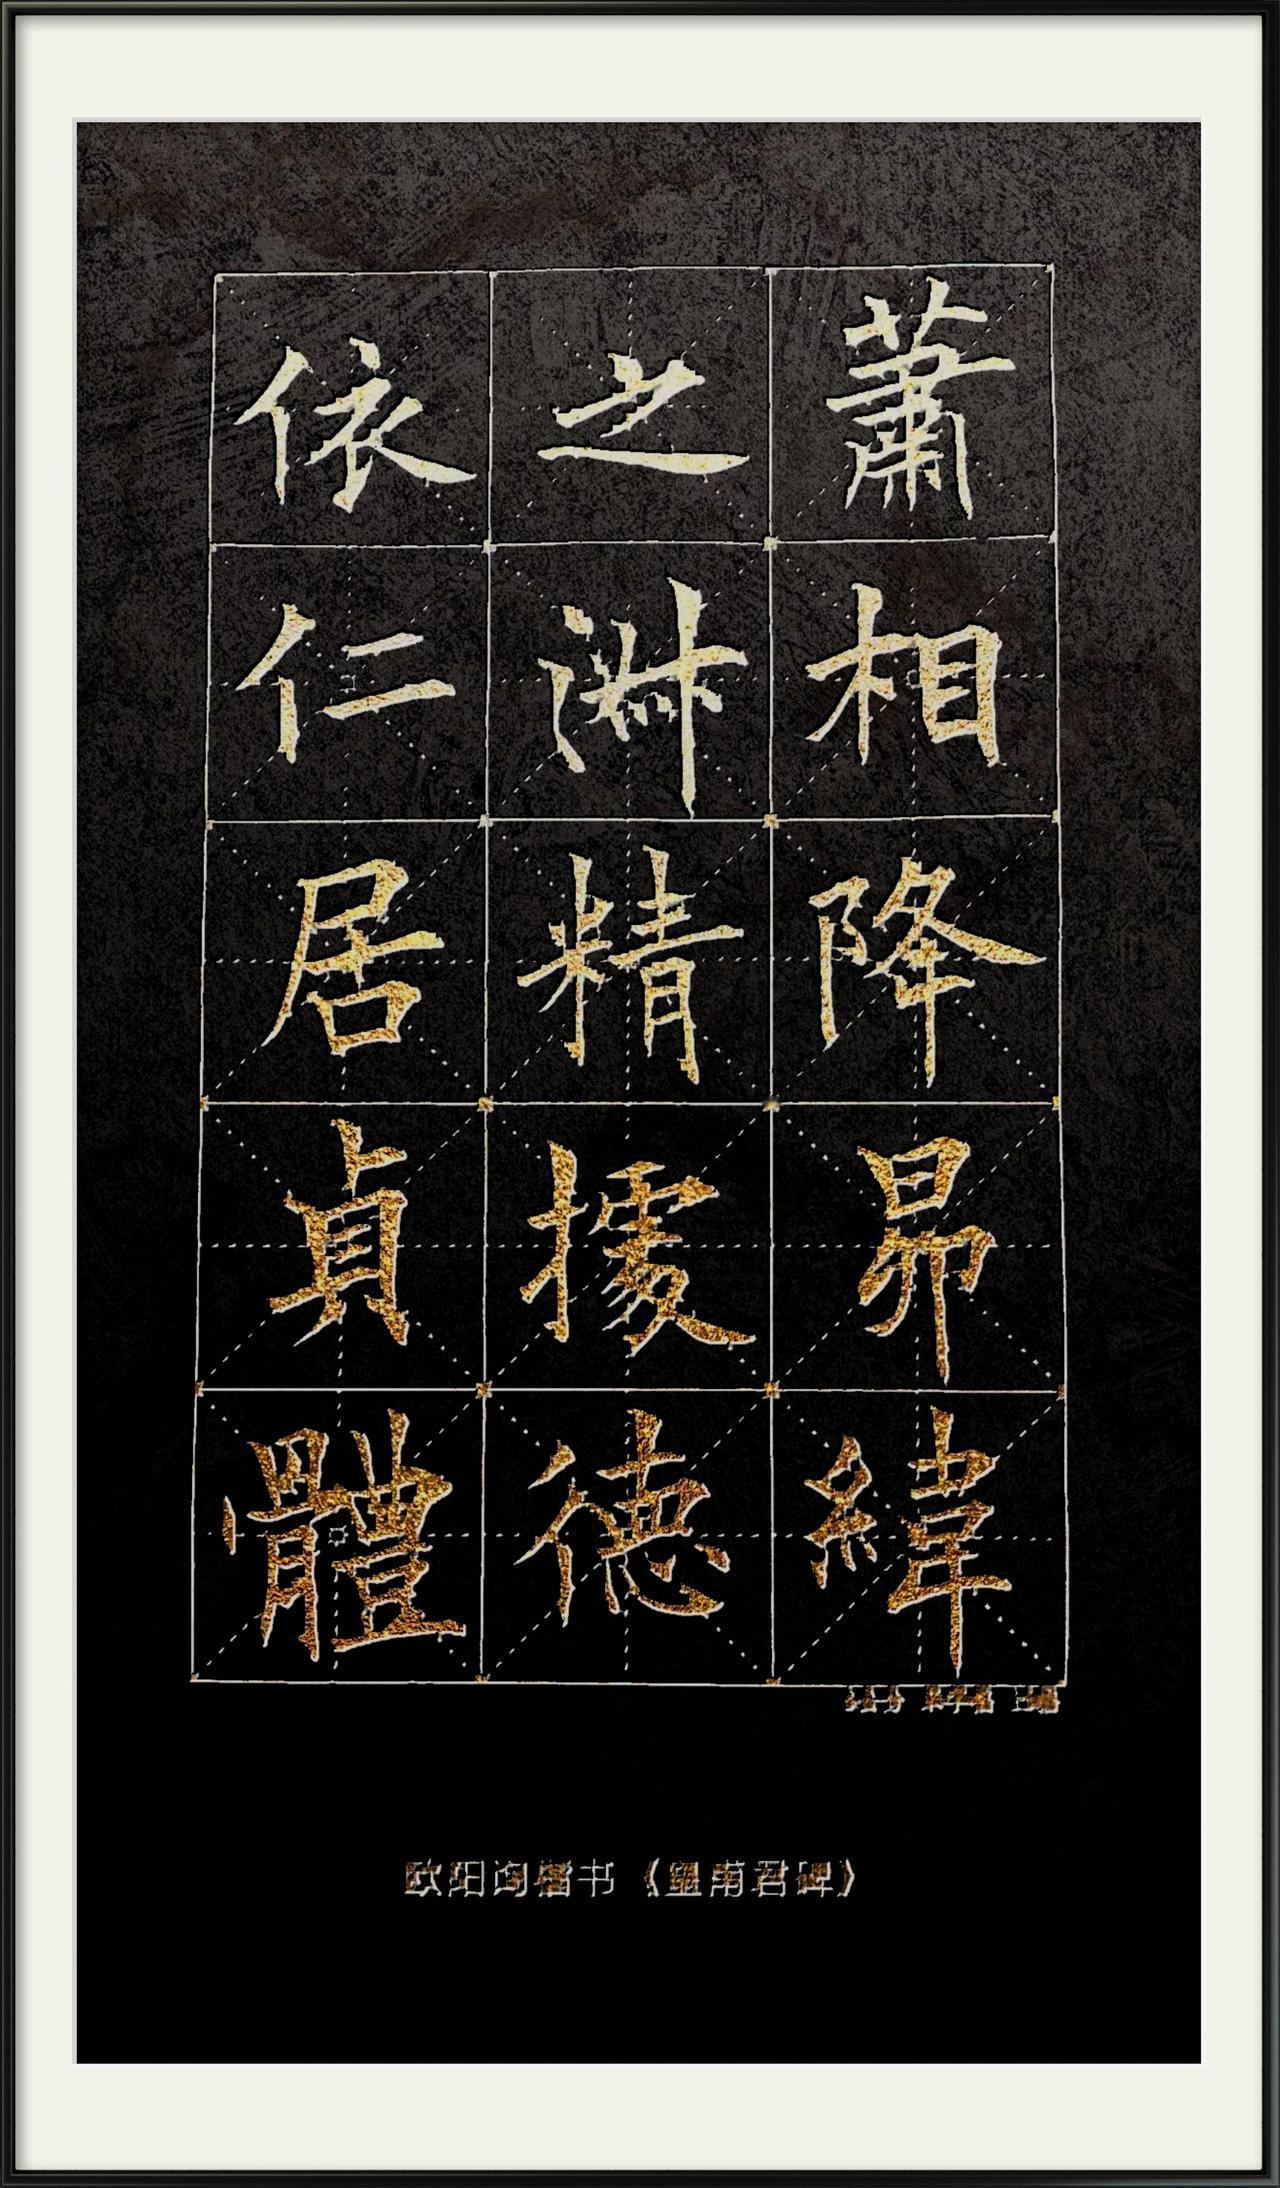 蕭相降昴緯
之淑精據德
依仁居貞體
欧阳询楷书《皇甫君碑》